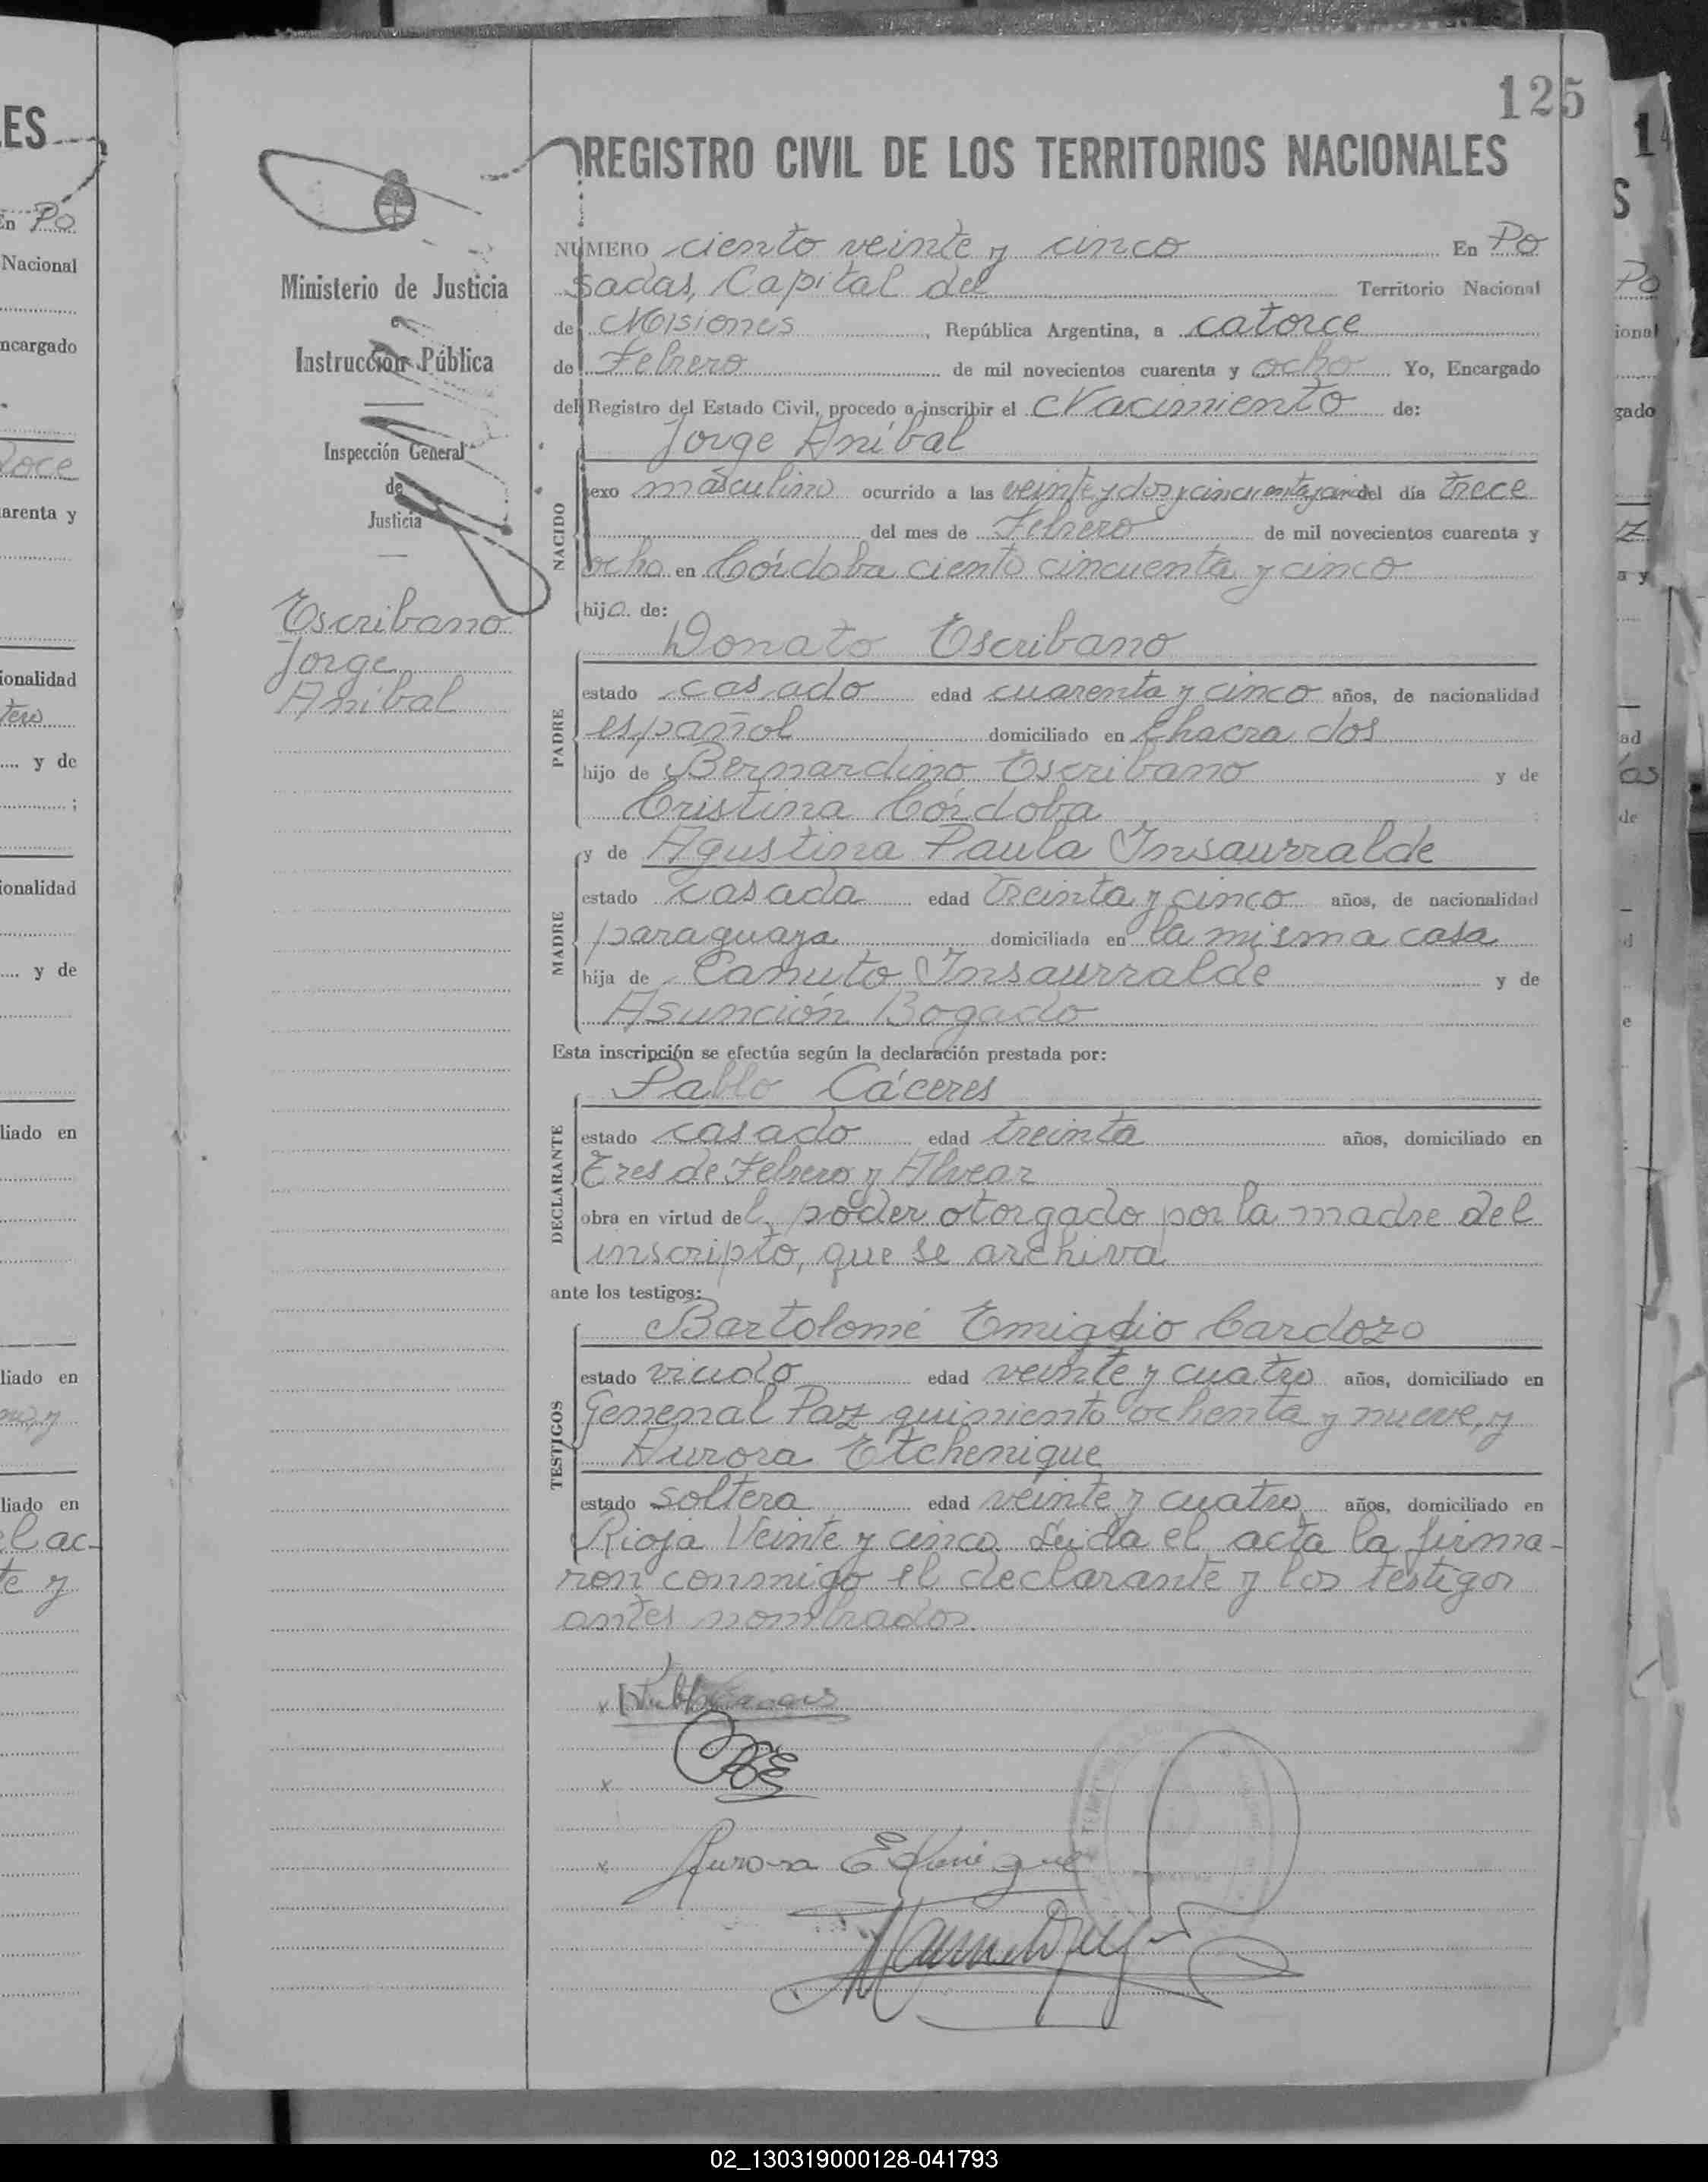 125
REGISTRO CIVIL DE LOS TERRITORIOS NACIONALES
Ministerio de Justicia
Instrucción Pública
Inspección General
de
Justicia
Escribano
Jorge
Aníbal
NÚMERO ciento veinte y cinco En Po
sadas, Capital del Territorio Nacional
de Misiones, República Argentina, a catorce
de Febrero de mil novecientos cuarenta y ocho Yo, Encargado
del Registro del Estado Civil, procedo a inscribir el Nacimiento de:
Jorge Aníbal
NACIDO
sexo masculino ocurrido a las veinte y dos y cincuenta y cinco del día trece
del mes de Febrero de mil novecientos cuarenta y
ocho en Córdoba ciento cincuenta y cinco
hijo de:
Donato Escribano
PADRE
estado casado edad cuarenta y cinco años, de nacionalidad
español domiciliado en Chacra dos
hijo de Bernardino Escribano y de
Cristina Córdoba
y de Agustina Paula Insaurralde
MADRE
estado casada edad treinta y cinco años, de nacionalidad
paraguaya domiciliada en la misma casa
hija de Canuto Insaurralde y de
Asunción Bogado
Esta inscripción se efectúa según la declaración prestada por:
Pablo Cáceres
DECLARANTE
estado casado edad treinta años, domiciliado en
Tres de Febrero y Alvear
obra en virtud del poder otorgado por la madre del
inscripto, que se archiva
ante los testigos:
Bartolomé Emigdio Cardozo
TESTIGOS
estado viudo edad veinte y cuatro años, domiciliado en
General Paz quiniento ochenta y nueve, y
Aurora Etchenique
estado soltera edad veinte y cuatro años, domiciliado en
Rioja Veinte y cinco. Leída el acta la firma-
ron conmigo el declarante y los testigos
antes nombrados.
x
x
x Aurora Etchenique
02_130319000128-041793